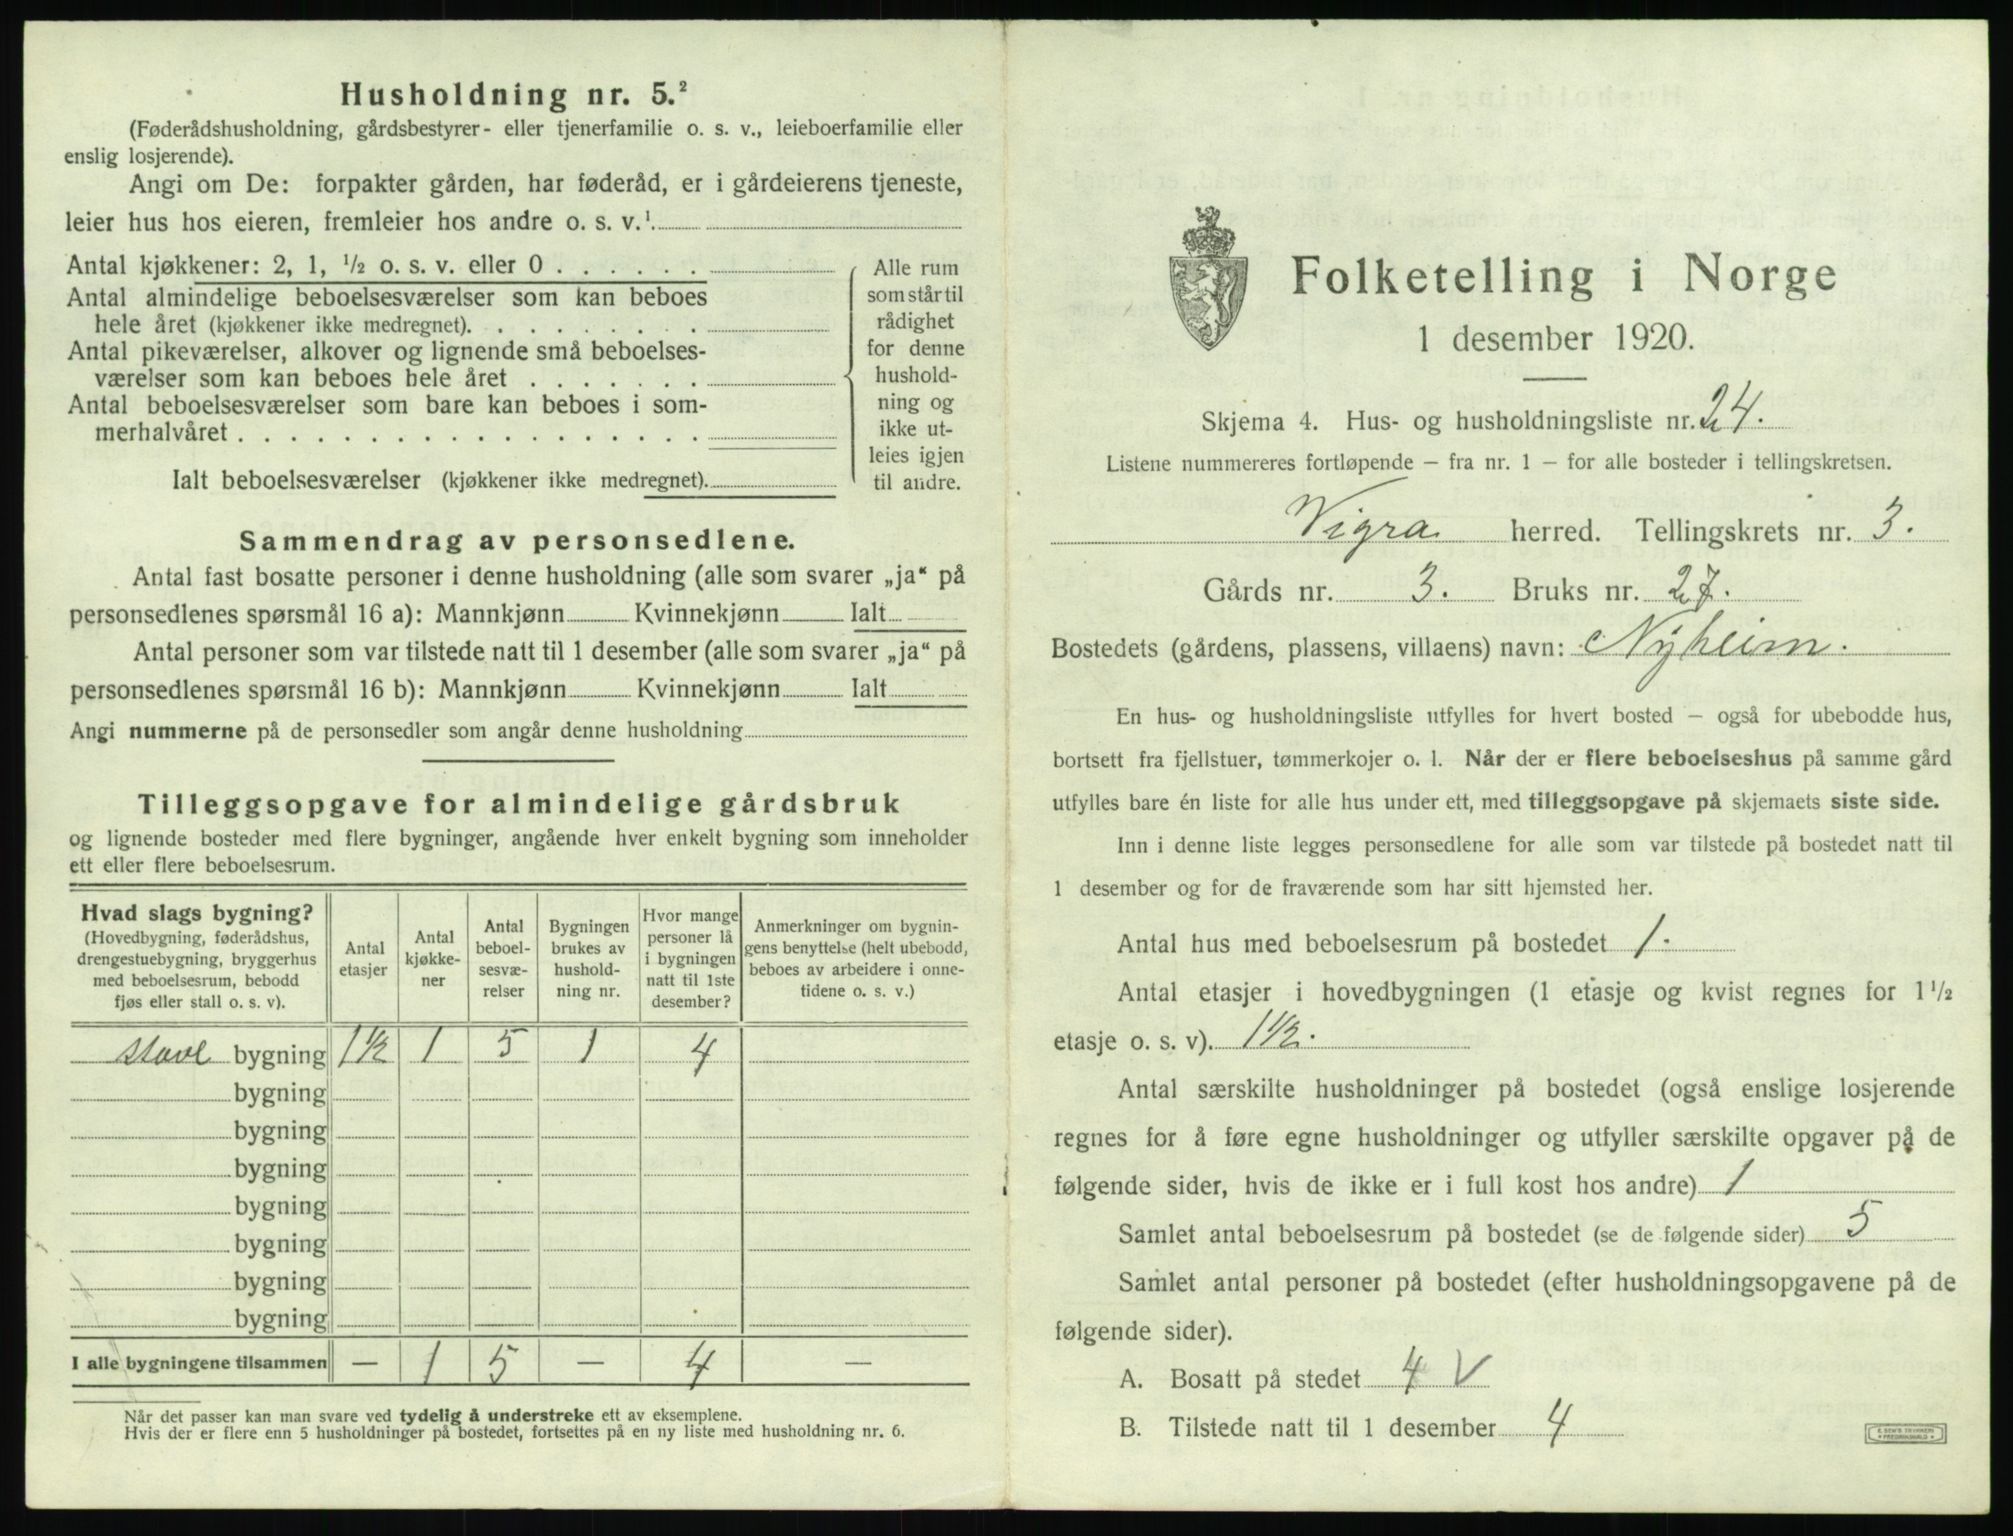 Husholdning nr. 5.²
(Føderådshusholdning, gårdsbestyrer- eller tjenerfamilie o. s. v., leieboerfamilie eller
enslig losjerende).
Angi om De: forpakter gården, har føderåd, er i gårdeierens tjeneste,
leier hus hos eieren, fremleier hos andre o. s. v.¹
Antal kjøkkener: 2, 1, ½ o. s. v. eller 0 . . . . . .
Antal almindelige beboelsesværelser som kan beboes
hele året (kjøkkener ikke medregnet). . . . . . . . .
Antal pikeværelser, alkover og lignende små beboelses-
værelser som kan beboes hele året . . . . . . .
Antal beboelsesværelser som bare kan beboes i som-
merhalvåret . . . . . . . . . . . . . . . . . .
Ialt beboelsesværelser (kjøkkener ikke medregnet).
Alle rum
som står til
rådighet
for denne
hushold-
ning og
ikke ut-
leies igjen
til andre.
Sammendrag av personsedlene.
Antal fast bosatte personer i denne husholdning (alle som svarer „ja“ på
personsedlenes spørsmål 16 a): Mannkjønn Kvinnekjønn Ialt
Antal personer som var tilstede natt til 1 desember (alle som svarer „ja“ på
personsedlenes spørsmål 16 b): Mannkjønn Kvinnekjønn Ialt
Angi nummerne på de personsedler som angår denne husholdning
Tilleggsopgave for almindelige gårdsbruk
og lignende bosteder med flere bygninger, angående hver enkelt bygning som inneholder
ett eller flere beboelsesrum.
Hvad slags bygning?
(Hovedbygning, føderådshus,
drengestuebygning, bryggerhus
med beboelsesrum, bebodd
fjøs eller stall o. s. v).
Antal
etasjer
Antal
kjøkke-
ner
Antal
beboel-
sesvæ-
relser
Bygningen
brukes av
hushold-
ning nr.
Hvor mange
personer lå
i bygningen
natt til 1ste
desember?
Anmerkninger om bygnin-
gens benyttelse (helt ubebodd,
beboes av arbeidere i onne-
tidene o. s. v.)
bygning 1½ 1 5 1 4
bygning
bygning
bygning
bygning
bygning
bygning
bygning
I alle bygningene tilsammen — 1 5 — 4 —
Når det passer kan man svare ved tydelig å understreke ett av eksemplene.
Hvis der er flere enn 5 husholdninger på bostedet, fortsettes på en ny liste med husholdning nr. 6.
Folketelling i Norge
1 desember 1920.
Skjema 4. Hus- og husholdningsliste nr. 24.
Listene nummereres fortløpende – fra nr. 1 – for alle bosteder i tellingskretsen.
Vigra herred. Tellingskrets nr. 3.
Gårds nr. 3. Bruks nr. 27.
Bostedets (gårdens, plassens, villaens) navn: Nyheim.
En hus- og husholdningsliste utfylles for hvert bosted – også for ubebodde hus,
bortsett fra fjellstuer, tømmerkojer o. l. Når der er flere beboelseshus på samme gård
utfylles bare én liste for alle hus under ett, med tilleggsopgave på skjemaets siste side.
Inn i denne liste legges personsedlene for alle som var tilstede på bostedet natt til
1 desember og for de fraværende som har sitt hjemsted her.
Antal hus med beboelsesrum på bostedet 1.
Antal etasjer i hovedbygningen (1 etasje og kvist regnes for 1½
etasje o. s. v). 1½.
Antal særskilte husholdninger på bostedet (også enslige losjerende
regnes for å føre egne husholdninger og utfyller særskilte opgaver på de
følgende sider, hvis de ikke er i full kost hos andre) 1
Samlet antal beboelsesrum på bostedet (se de følgende sider) 5
Samlet antal personer på bostedet (efter husholdningsopgavene på de
følgende sider).
A. Bosatt på stedet 4 V
B. Tilstede natt til 1 desember 4